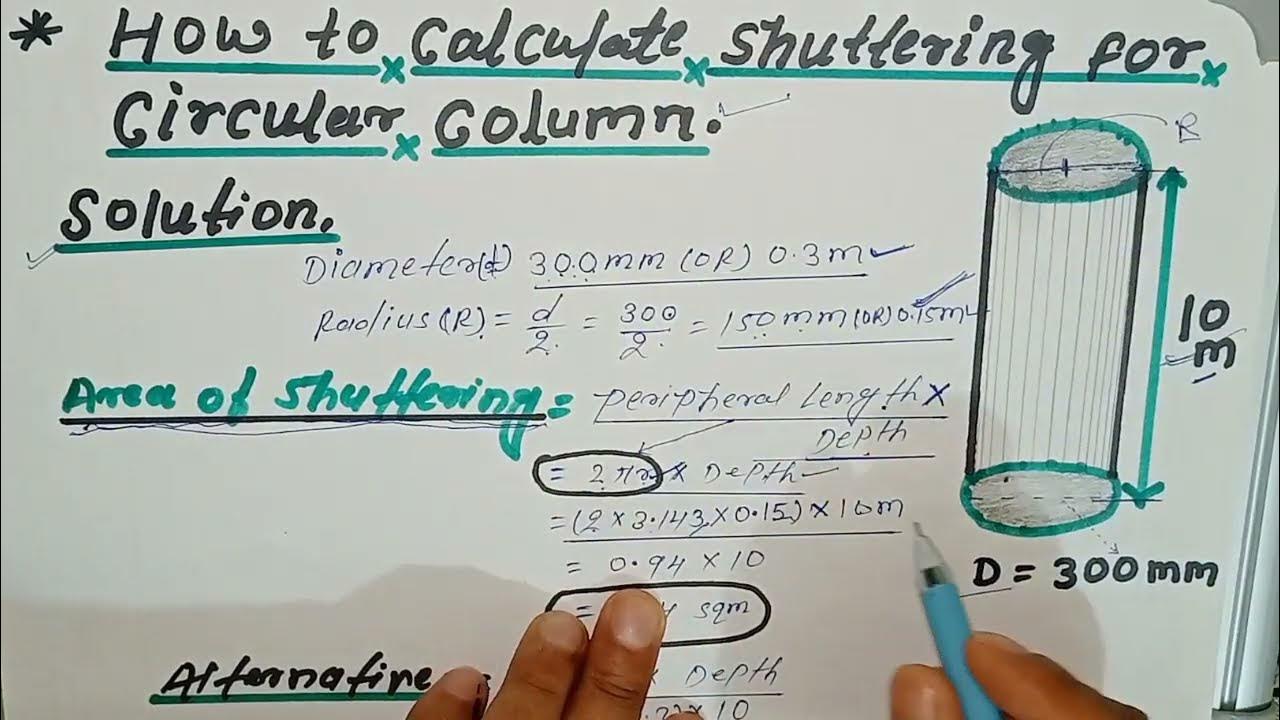 * How to Calculate Shuttering for
Circular Column.
R
Solution.
Diameter(d) 300mm (OR) 0.3m
Radius(R) = d/2 = 300/2 = 150mm(OR)0.15m
10
m
Area of Shuttering = Peripheral Length X
Depth
= 2πr X Depth
= (2 X 3.143 X 0.15) X 10m
= 0.94 X 10
D = 300mm
= sqm
Alternative
Depth
X 10